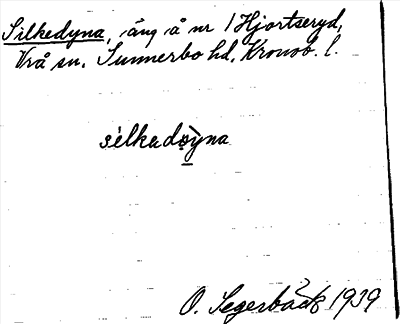 Silkedyna, äng å nr 1 Hjortseryd,
Vrå sn. Sunnerbo hd, Kronob. l.
sìlkadø̀yna
O. Segerbäck 1939